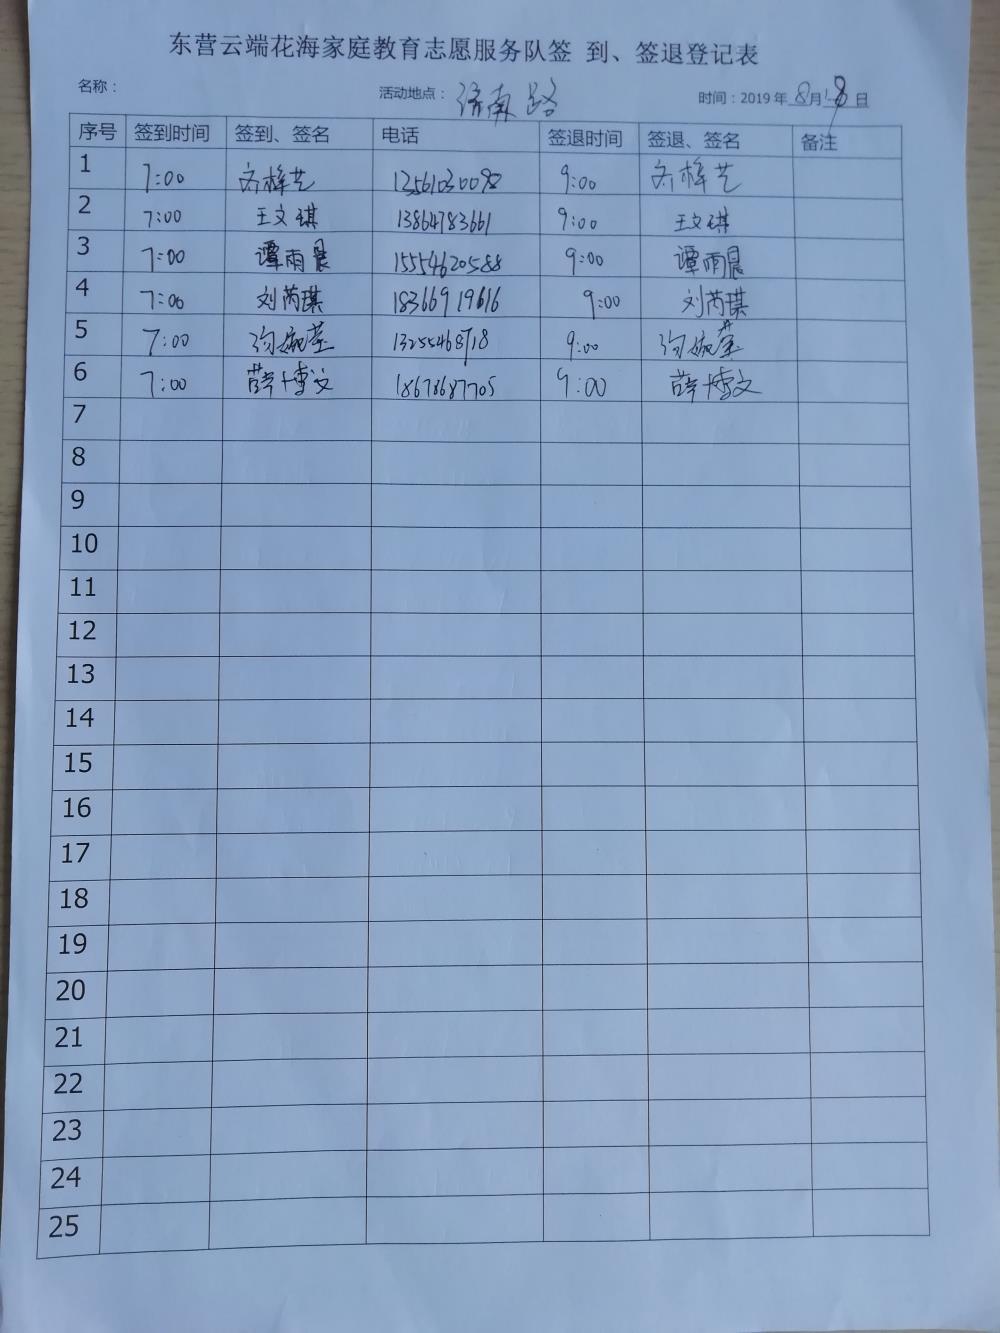 东营云端花海家庭教育志愿服务队签 到、签退登记表
名称： 活动地点： 济南路 时间：2019年8月18日
序号 签到时间 签到、签名 电话 签退时间 签退、签名 备注
1 7:00 齐梓艺 13561030098 9:00 齐梓艺
2 7:00 王文琪 13864783661 9:00 王文琪
3 7:00 谭雨晨 15554620588 9:00 谭雨晨
4 7:00 刘芮琪 18366919616 9:00 刘芮琪
5 7:00 13255468718 9:00
6 7:00 薛博文 18678687705 9:00 薛博文
7
8
9
10
11
12
13
14
15
16
17
18
19
20
21
22
23
24
25